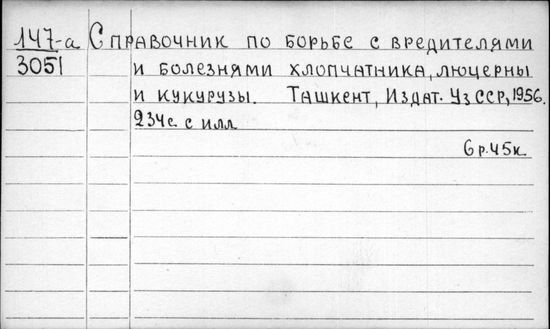 147-а Справочник по борьбе с вредителями
3051 и болезнями хлопчатника, люцерны
и кукурузы. Ташкент, Издат. УзССР, 1956.
234с. с илл
6р.45к.